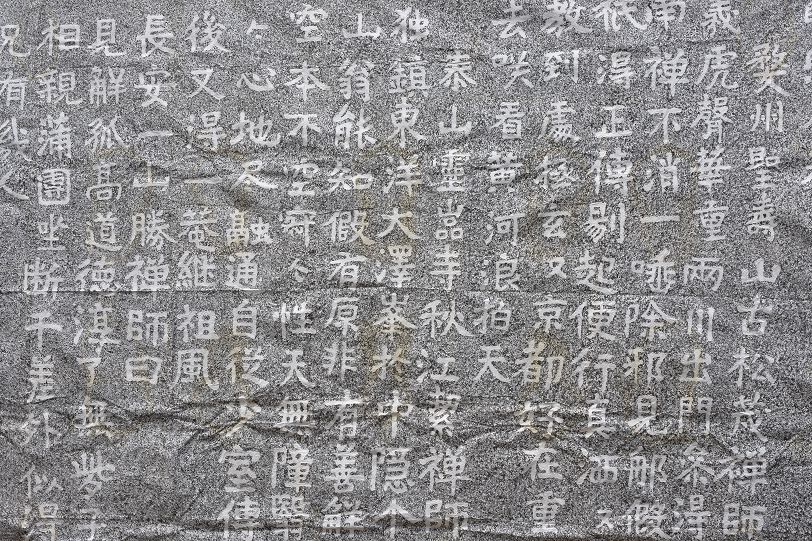 婺州聖壽山古松茂禪師
義虎聲華重兩川出門
南禪不消一唾除邪見那
祇得正傳剔起便行真
教到處極玄又京都好在重
去咲看黄河浪拍天
泰山靈嵓寺秋江潔禪師
独鎮東洋大澤峯於中隐个
山翁能知假有原非有善解
空本不空寄 性天無障翳
心地尽融通自從少室傳
後又得一菴継祖風
長安一山勝禪師曰
見解孤高道德淳了無
相親蒲團坐断千差外似得
兄有